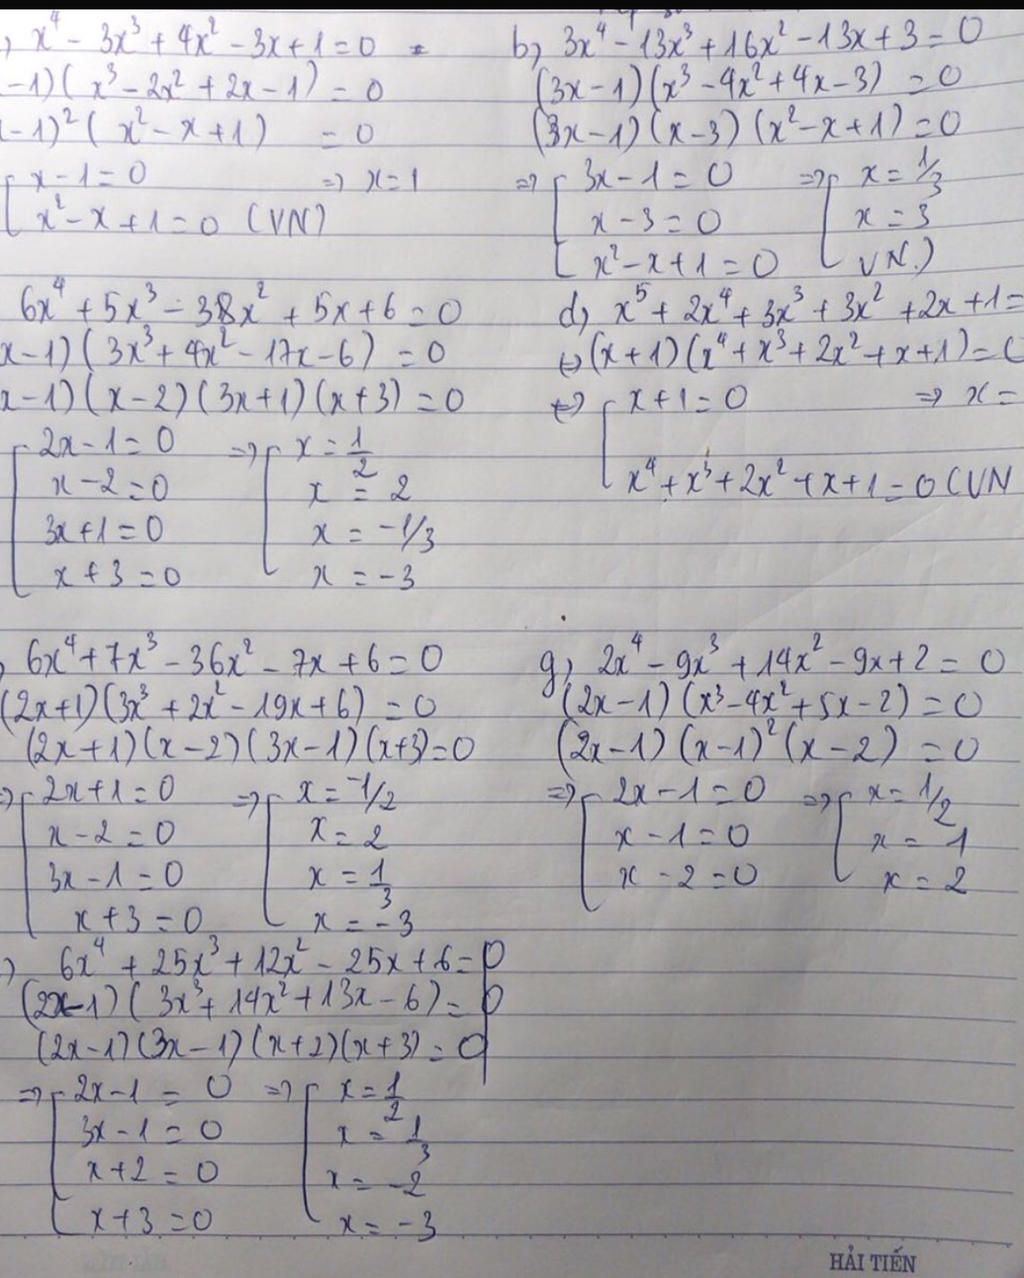 ) x⁴ - 3x³ + 4x² - 3x + 1 = 0
-1)(x³ - 2x² + 2x - 1) = 0
-1)²(x² - x + 1) = 0
x - 1 = 0 => x = 1
x² - x + 1 = 0 (VN)
b) 3x⁴ - 13x³ + 16x² - 13x + 3 = 0
(3x - 1)(x³ - 4x² + 4x - 3) = 0
(3x - 1)(x - 3)(x² - x + 1) = 0
=> [ 3x - 1 = 0 => [ x = 1/3
x - 3 = 0 x = 3
x² - x + 1 = 0 VN.)
6x⁴ + 5x³ - 38x² + 5x + 6 = 0
x - 1)(3x³ + 4x² - 17x - 6) = 0
x - 1)(x - 2)(3x + 1)(x + 3) = 0
2x - 1 = 0 => [ x = 1/2
x - 2 = 0 x = 2
3x + 1 = 0 x = -1/3
x + 3 = 0 x = -3
d) x⁵ + 2x⁴ + 3x³ + 3x² + 2x + 1 =
<=> (x + 1)(x⁴ + x³ + 2x² + x + 1) = 0
<=> [ x + 1 = 0 => x =
x⁴ + x³ + 2x² + x + 1 = 0 (VN
) 6x⁴ + 7x³ - 36x² - 7x + 6 = 0
(2x + 1)(3x³ + 2x² - 19x + 6) = 0
(2x + 1)(x - 2)(3x - 1)(x + 3) = 0
=> [ 2x + 1 = 0 => [ x = -1/2
x - 2 = 0 x = 2
3x - 1 = 0 x = 1/3
x + 3 = 0 x = -3
g) 2x⁴ - 9x³ + 14x² - 9x + 2 = 0
(2x - 1)(x³ - 4x² + 5x - 2) = 0
(2x - 1)(x - 1)²(x - 2) = 0
=> [ 2x - 1 = 0 => [ x = 1/2
x - 1 = 0 x = 1
x - 2 = 0 x = 2
) 6x⁴ + 25x³ + 12x² - 25x + 6 = 0
(2x - 1)(3x³ + 14x² + 13x - 6) = 0
(2x - 1)(3x - 1)(x + 2)(x + 3) = 0
=> [ 2x - 1 = 0 => [ x = 1/2
3x - 1 = 0 x = 1/3
x + 2 = 0 x = -2
x + 3 = 0 x = -3
HẢI TIẾN